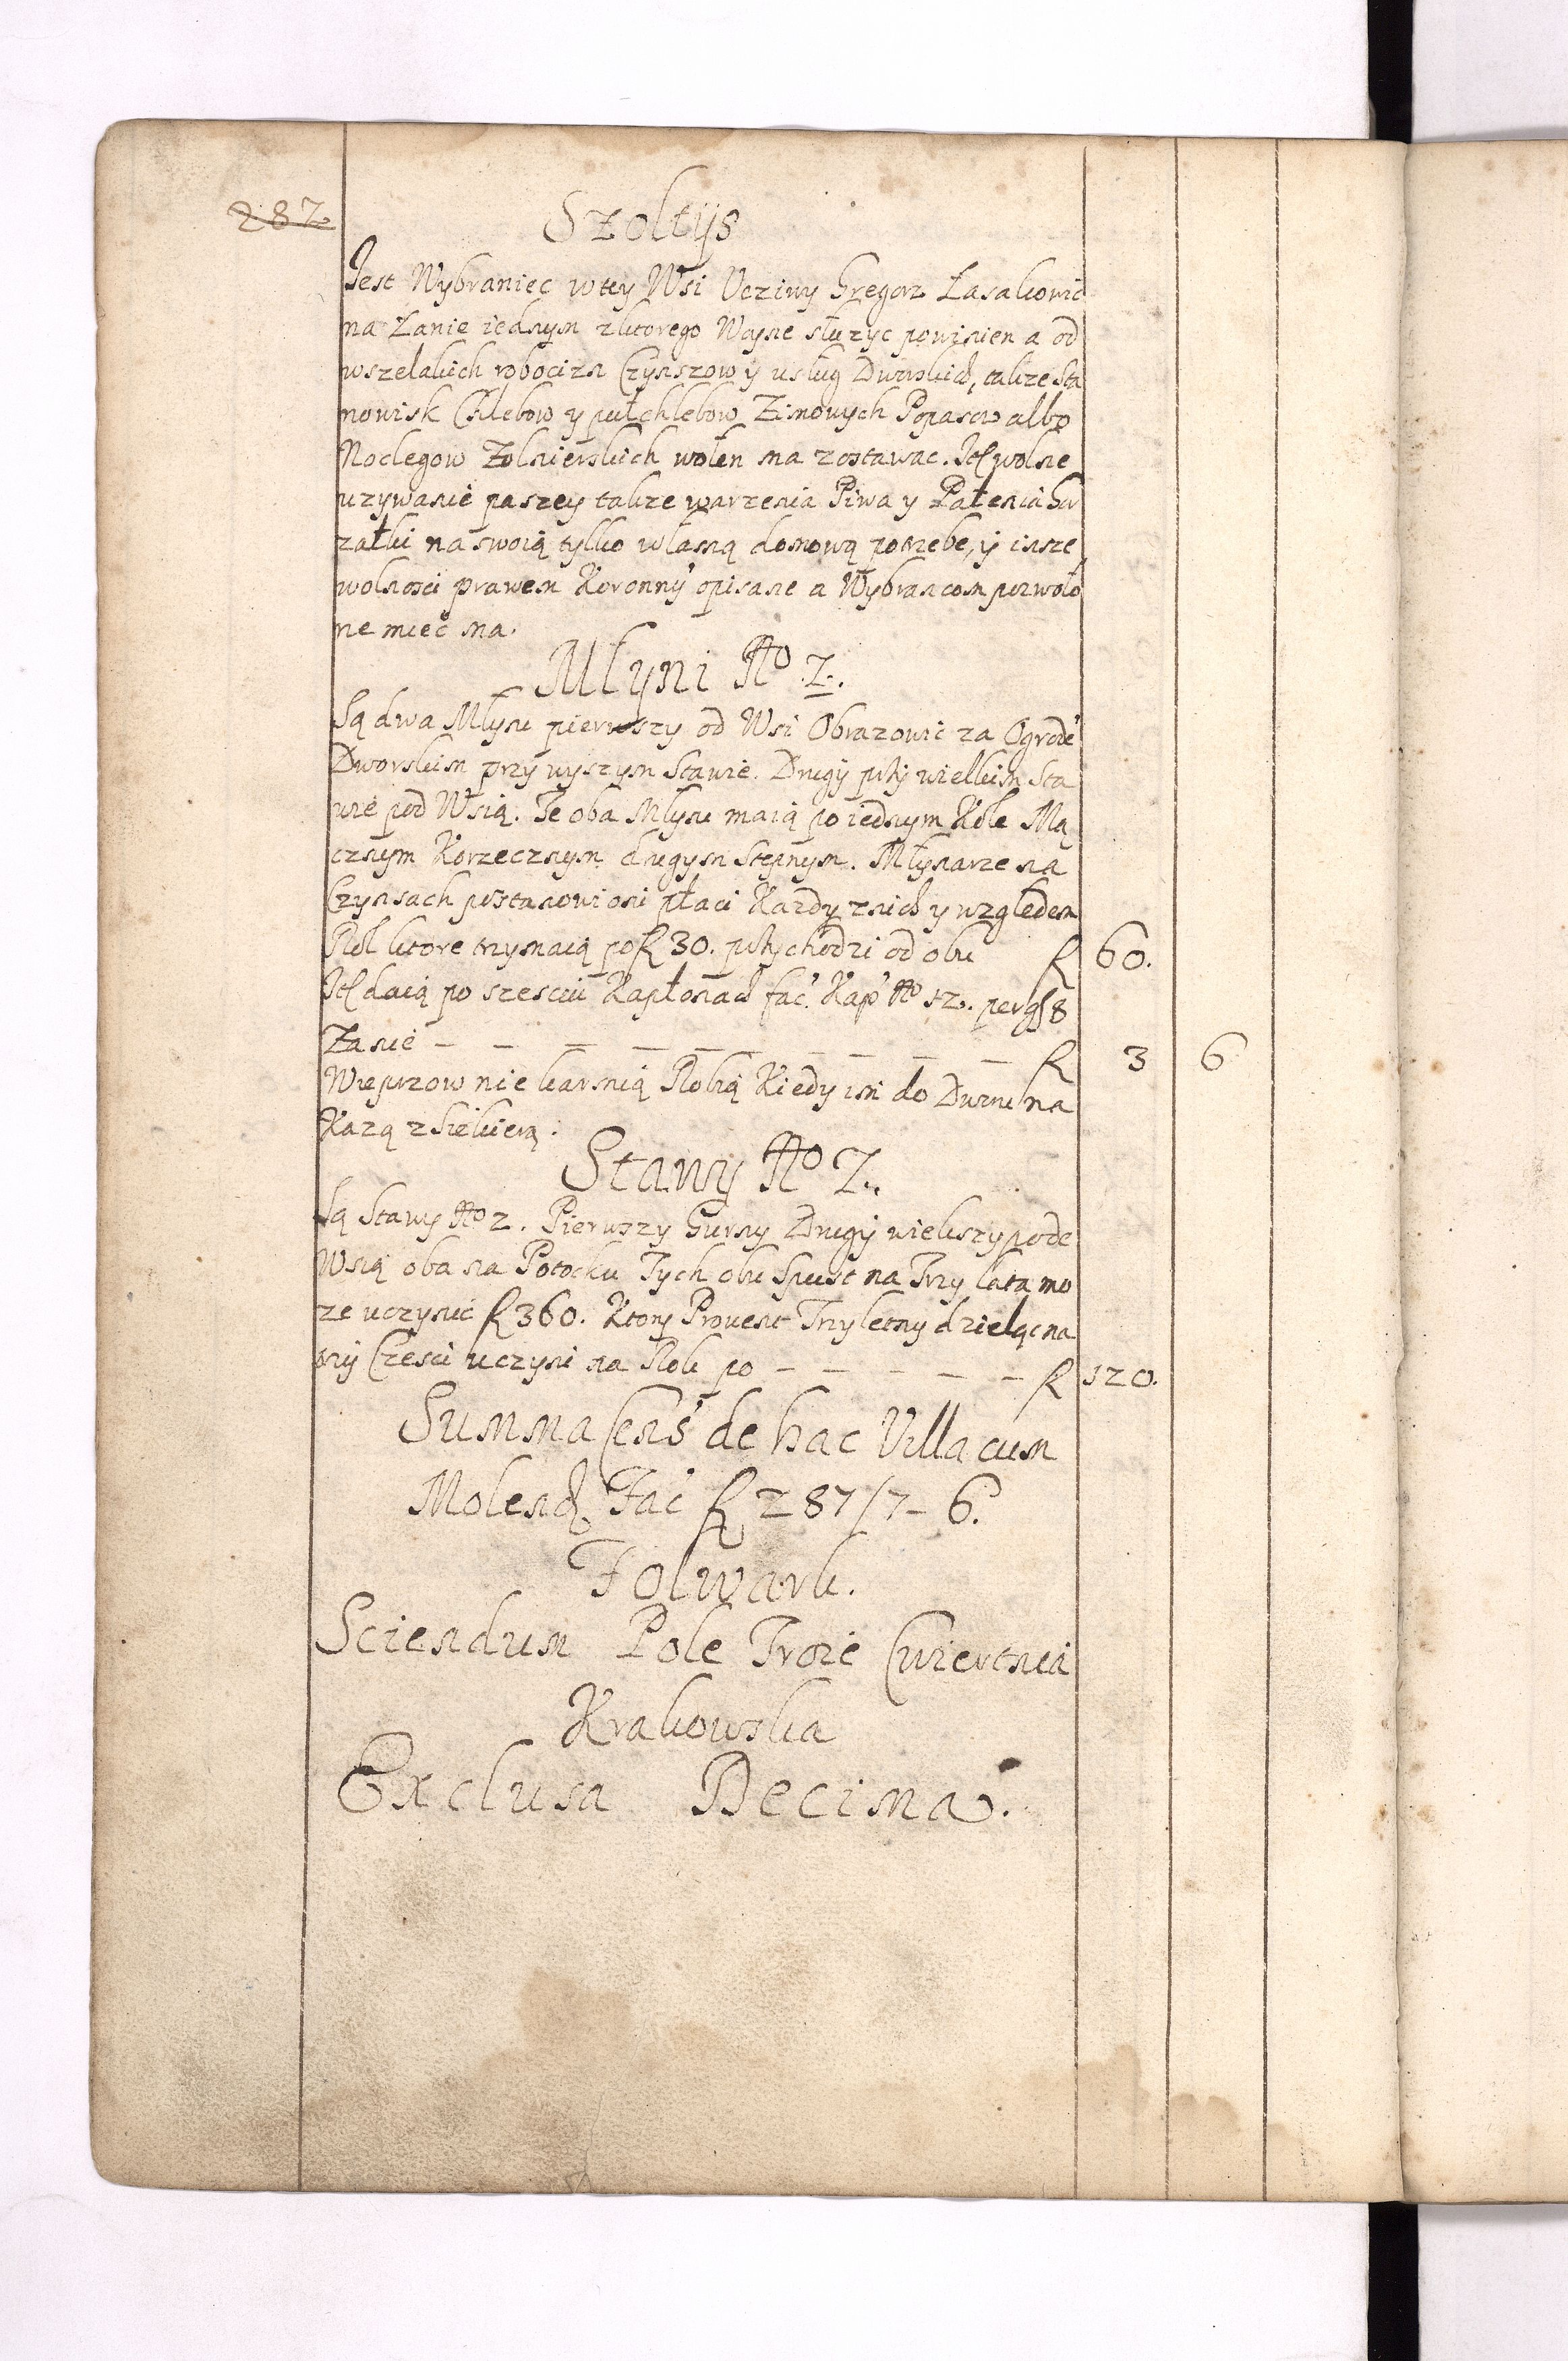 287
Szoltÿs
Jest Wybraniec w tey Wsi Ucziwy Grzegorz Łasakowic
na Łanie iednym z ktorego Woynę słuzyc powinien a od
wszelakich robocizn Czynszow y usług Dworskich, takze Sta
nowisk Chlebow y pułchlebow Zimowych Popasow albo
Noclegow Zolnierskich wolen ma zostawac. It wolne
uzywanie paszey takze warzenia Piwa y Palenia Go
załki na swoią tylko własną domową potrzebe, ÿ insze
wolnosci prawem Koronnÿ opisane a Wybrancom pozwolo
ne miec ma.
Młyni No 2.
Są dwa Młyny pierwszy od Wsi Obrazowic za Ogrode
Dworskim przy wyszym Stawie. Drugÿ przy wielkim Sta
wie pod Wsią. Te oba Młyny maią po iednym Kole Mą
cznym Korzecznym drugym Stępnym. Młynarze na
Czynsach postanowieni płaci Kazdy z nich y względem
Rol ktore trzymaią po f 30. przychodzi od obu f 60.
It daią po szesciu Kapłonach fac. Kap No 12. per gs 8
Zanie – – – – – – – – – f 3 6
Wieprzow nie karmią Robią Kiedy im do Dworu na
Kazą z siekierą.
Stawy No 2.
Są Stawy No 2. Pierwszy Gurny Drugÿ wiekszy pode
Wsią oba na Potocku Tych obu Spust na Trzy lata mo
ze uczynic f 360. Ktory Provent Trzyletny dzieląc na
trzÿ Czesci uczyni na Rok po – – – – – f 120.
Summa Cens de hac Villa cum
Molend. Fac f 287/7–6.
Folwark.
Sciendum Pole Troie Cwiertnia
Krakowska
Exclusa Decima.